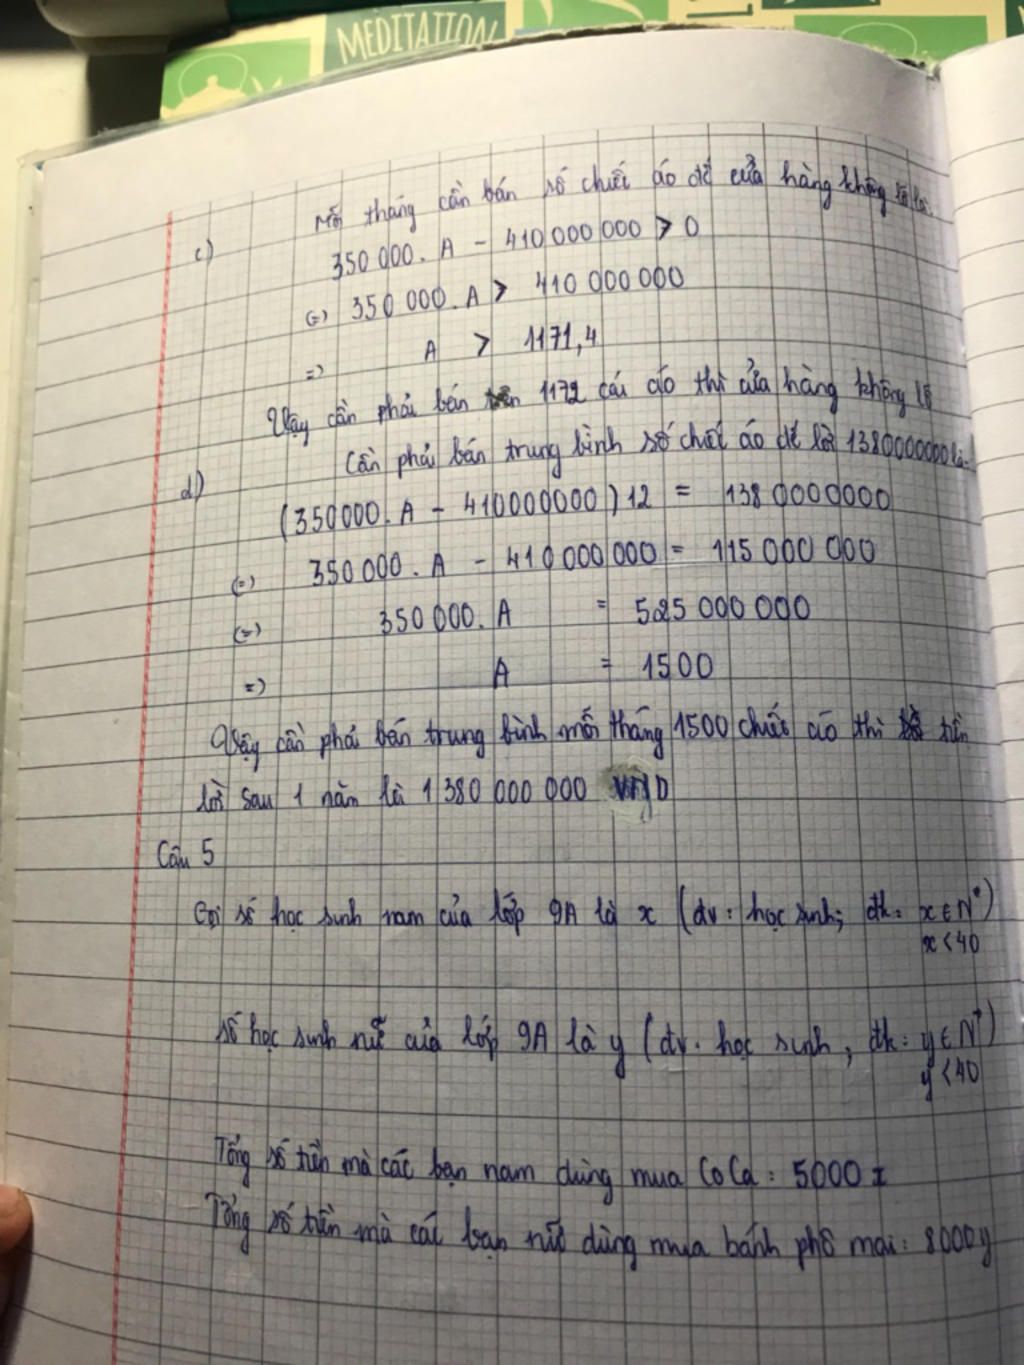 MEDITATION
Mỗi tháng cần bán số chiếc áo để cửa hàng không lỗ là:
c) 350 000. A - 410 000 000 > 0
(=) 350 000. A > 410 000 000
=) A > 1171,4
Vậy cần phải bán 1172 cái áo thì cửa hàng không lỗ
d) Cần phải bán trung bình số chiếc áo để lời 1380000000 là:
(350000. A - 410000000) 12 = 138 0000000
(=) 350 000. A - 410 000 000 = 115 000 000
(=) 350 000. A = 525 000 000
=) A = 1500
Vậy cần phải bán trung bình mỗi tháng 1500 chiếc áo thì tiền
lời sau 1 năm là 1 380 000 000 VND
Câu 5
Gọi số học sinh nam của lớp 9A là x (dv: học sinh; đk: x ∈ N*)
x < 40
số học sinh nữ của lớp 9A là y (dv. học sinh, đk: y ∈ N*)
y < 40
Tổng số tiền mà các bạn nam dùng mua CoCa: 5000 x
Tổng số tiền mà các bạn nữ dùng mua bánh phô mai: 8000y